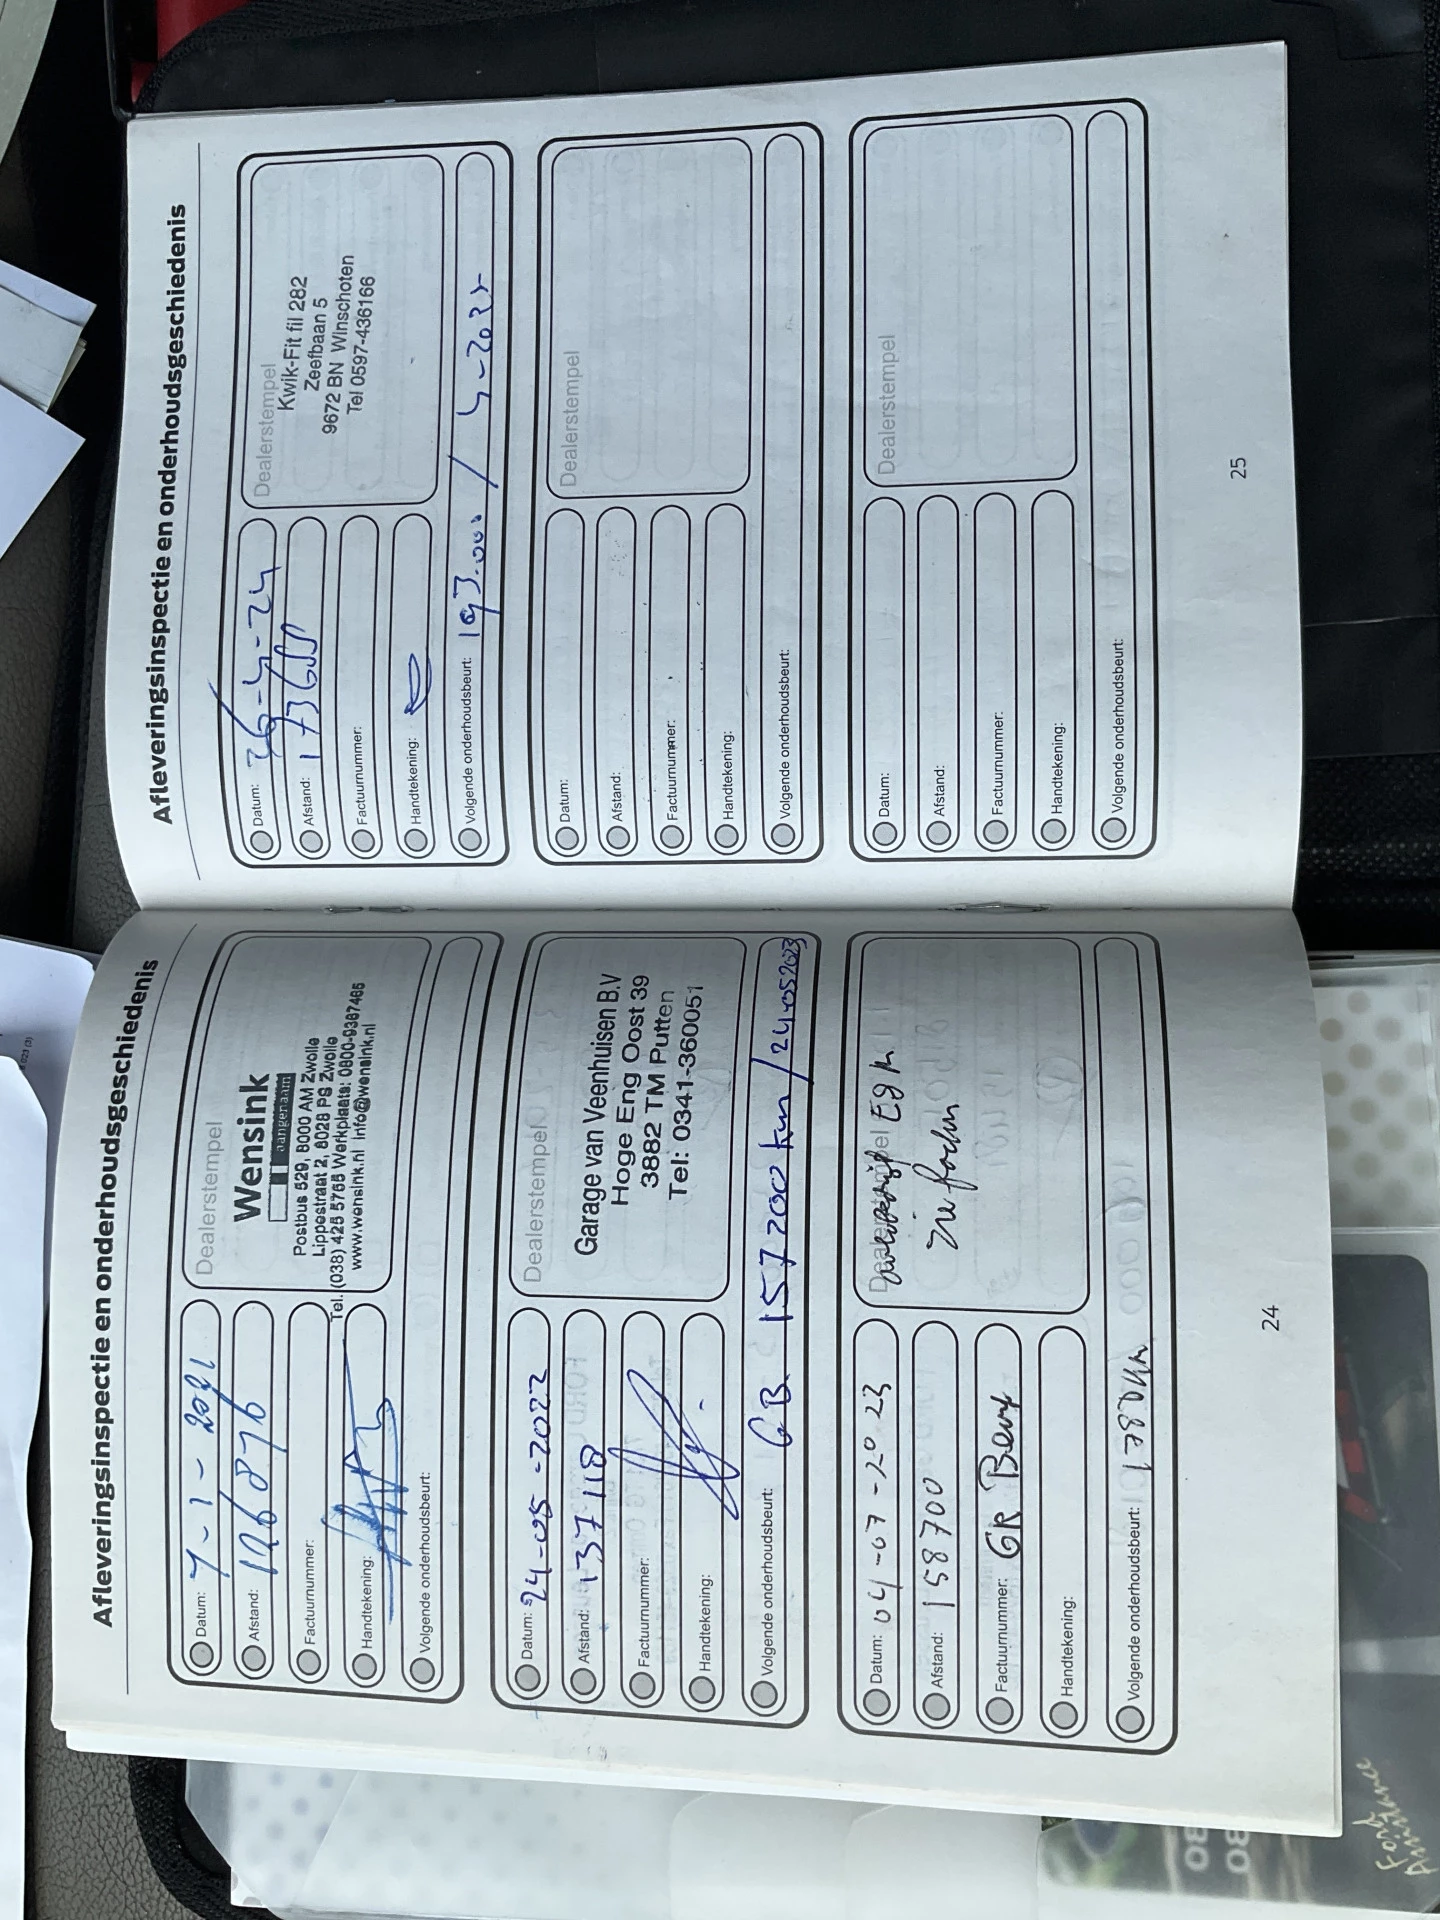 Afleveringsinspectie en onderhoudsgeschiedenis
Datum: 7-1-2021
Afstand: 126876
Factuurnummer:
Handtekening:
Volgende onderhoudsbeurt:
Dealerstempel
Wensink
aangenaam
Postbus 529, 8000 AM Zwolle
Lippestraat 2, 8028 PS Zwolle
Tel. (038) 425 5765 Werkplaats: 0800-9367465
www.wensink.nl info@wensink.nl
Datum: 24-05-2022
Afstand: 137118
Factuurnummer:
Handtekening:
Volgende onderhoudsbeurt: GB. 157200 km / 24-05-2023
Dealerstempel
Garage van Veenhuisen B.V
Hoge Eng Oost 39
3882 TM Putten
Tel: 0341-360051
Datum: 04-07-2023
Afstand: 158700
Factuurnummer: GR Beurt
Handtekening:
Volgende onderhoudsbeurt:
Dealerstempel
24
Afleveringsinspectie en onderhoudsgeschiedenis
Datum: 26-4-24
Afstand:
Factuurnummer:
Handtekening:
Volgende onderhoudsbeurt: 193.000 / 4-2025
Dealerstempel
Kwik-Fit fil 282
Zeefbaan 5
9672 BN Winschoten
Tel 0597-436166
Datum:
Afstand:
Factuurnummer:
Handtekening:
Volgende onderhoudsbeurt:
Dealerstempel
Datum:
Afstand:
Factuurnummer:
Handtekening:
Volgende onderhoudsbeurt:
Dealerstempel
25
Ford
Assistance
08